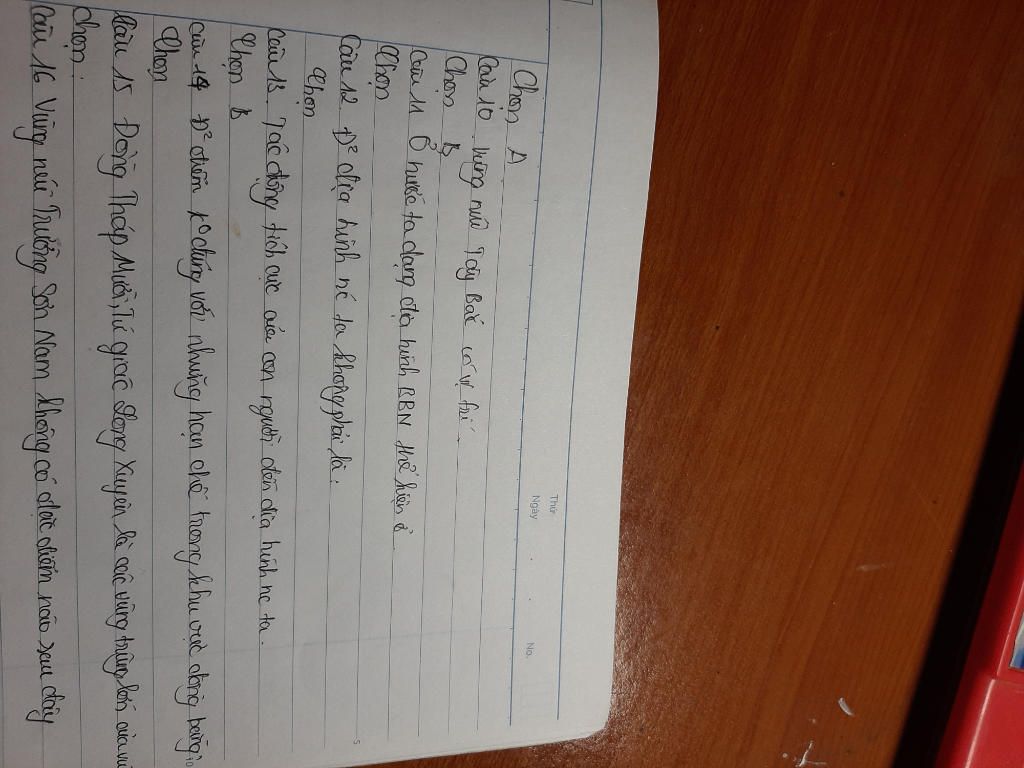 Thứ:
Ngày . . No.
Chọn A
Câu 10. Vùng núi Tây Bắc có vị trí.
Chọn B
Câu 11 Ở nước ta dạng địa hình BBN thể hiện ở.
Chọn
Câu 12 Đ² địa hình nc ta không phải là:
Chọn
Câu 13. Tác động tích cực của con người đến địa hình nc ta.
Chọn B
Câu 14 Đ² điểm k° đúng với những hạn chế trong khu vực đồng bằng
Chọn
Câu 15 Đồng Tháp Mười, Tứ giác Long Xuyên là các vùng trũng lớn của
chọn.
Câu 16 Vùng núi Trường Sơn Nam không có đặc điểm nào sau đây
5
10